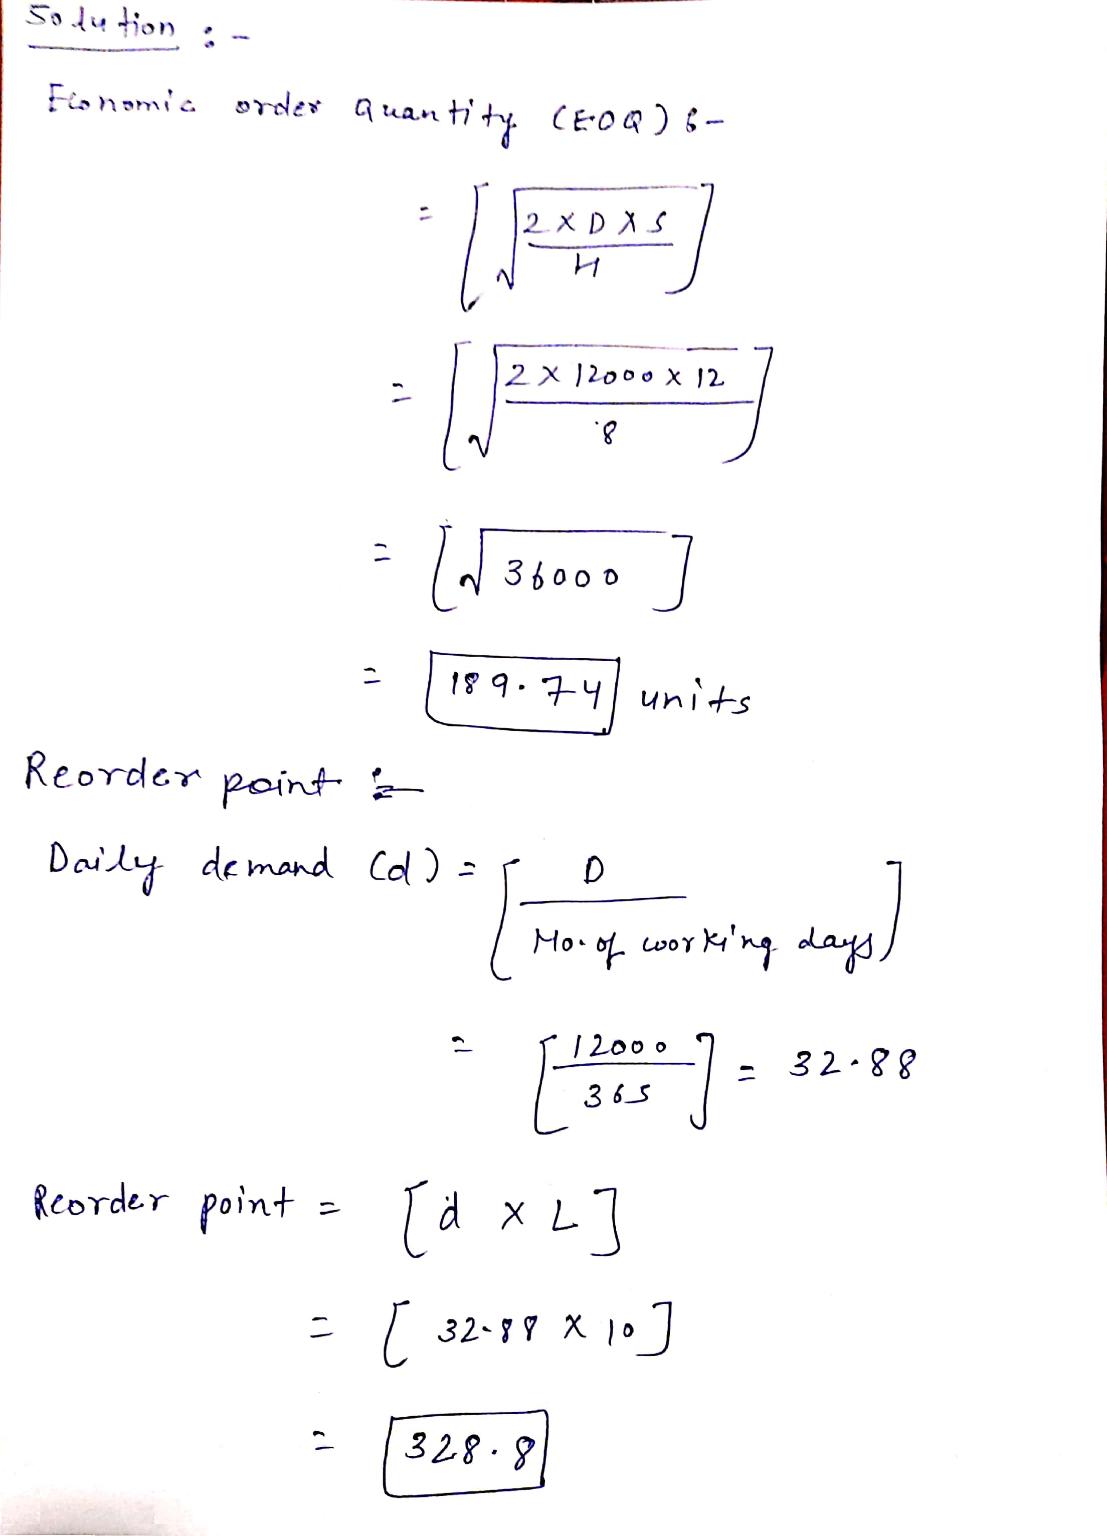 Solution :-
Economic order Quantity (EOQ) :-
= [√ 2 X D X S / H ]
= [√ 2 X 12000 X 12 / 8 ]
= [√ 36000 ]
= 189.74 units
Reorder point :-
Daily demand (d) = [ D / No. of working days ]
= [ 12000 / 365 ] = 32.88
Reorder point = [ d x L ]
= [ 32.88 X 10 ]
= 328.8